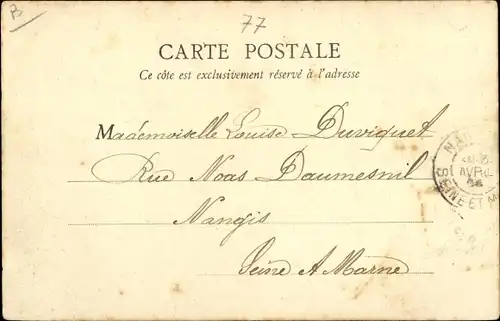 B
77
CARTE POSTALE
Ce côte est exclusivement réservé à l'adresse
Mademoiselle Louise Duviquet
Rue Noas Daumesnil
Nangis
Seine A Marne
AVRIL
SEINE ET M